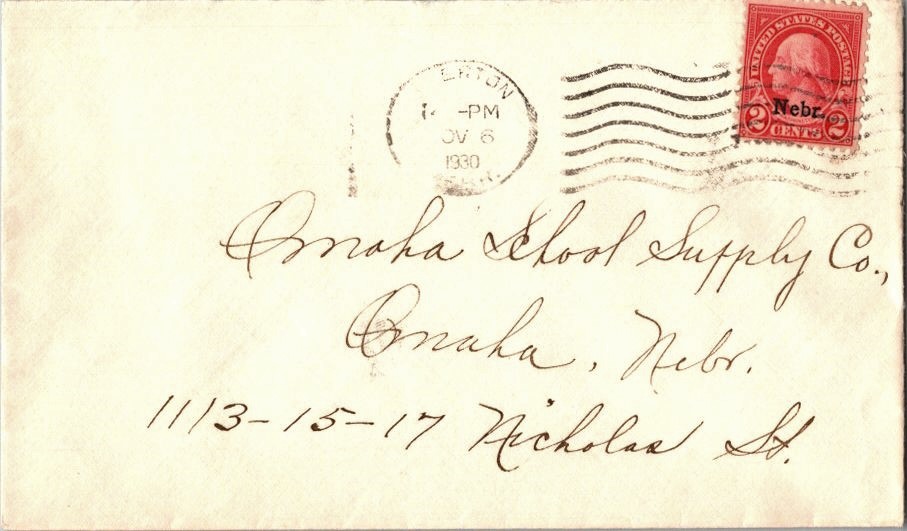 UNITED STATES POSTAGE
Nebr.
2 CENTS 2
ERTON
-PM
OV 6
1930
Omaha School Supply Co.,
Omaha, Nebr.
1113-15-17 Nicholas St.